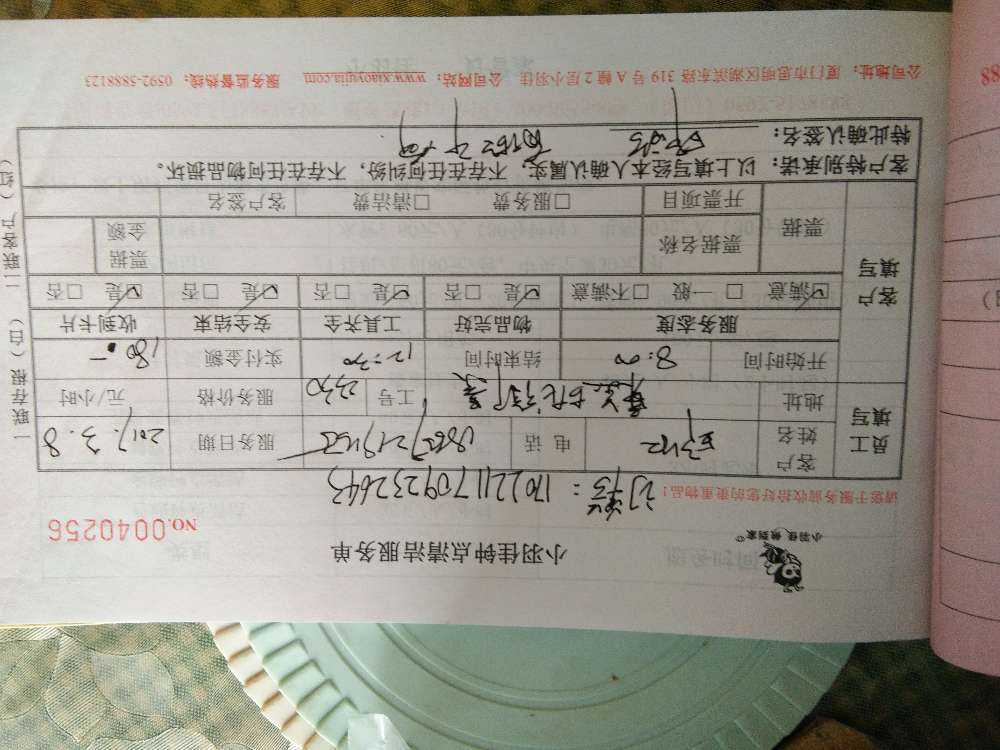 小羽佳 做到家
小羽佳钟点清洁服务单
NO.0040256
请您于服务前收拾好您的贵重物品！
订单：1702211709232643
员工填写
客户姓名
电话
服务日期 2017.3.8
地址
工号 2330
服务价格 元/小时
开始时间 8:00 结束时间 12:30 实付金额 180.-
服务态度 物品完好 工具齐全 安全结束 收到卡片
客户填写
☑满意 □一般 □不满意 ☑是 □否 ☑是 □否 ☑是 □否 ☑是 □否
票据 票据名称 票据金额
开票项目 □服务费 □清洁费 客户签名
客户特别承诺：以上填写经本人确认属实，不存在任何纠纷，不存在任何物品损坏。
特此确认签名：
公司地址：厦门市思明区湖滨东路 319 号 A 幢 2 层小羽佳 公司网站：www.xiaoyujia.com 服务监督热线：0592-5888123
一联存根（白） 二联客户（红）